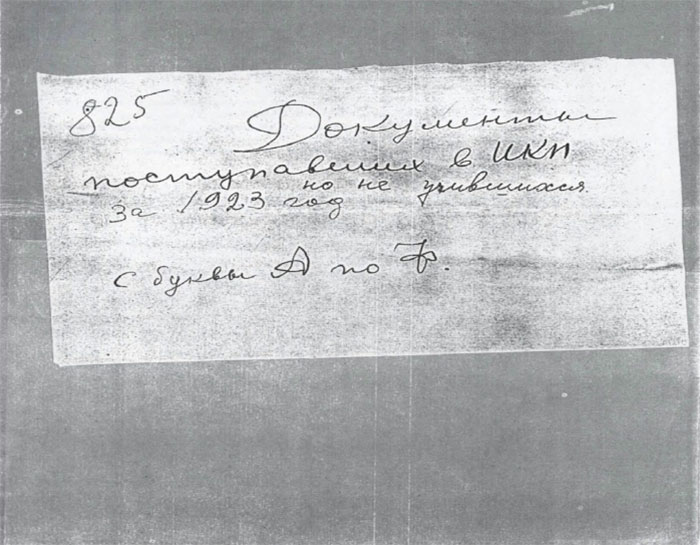 825
Документы
поступавших в ИКП
но не учившихся
за 1923 год
с буквы А по Ф.